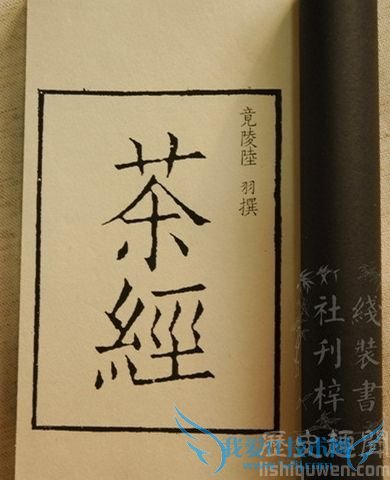 綫裝書
社刊梓
竟陵陸 羽撰
茶經
lishiquwen.com